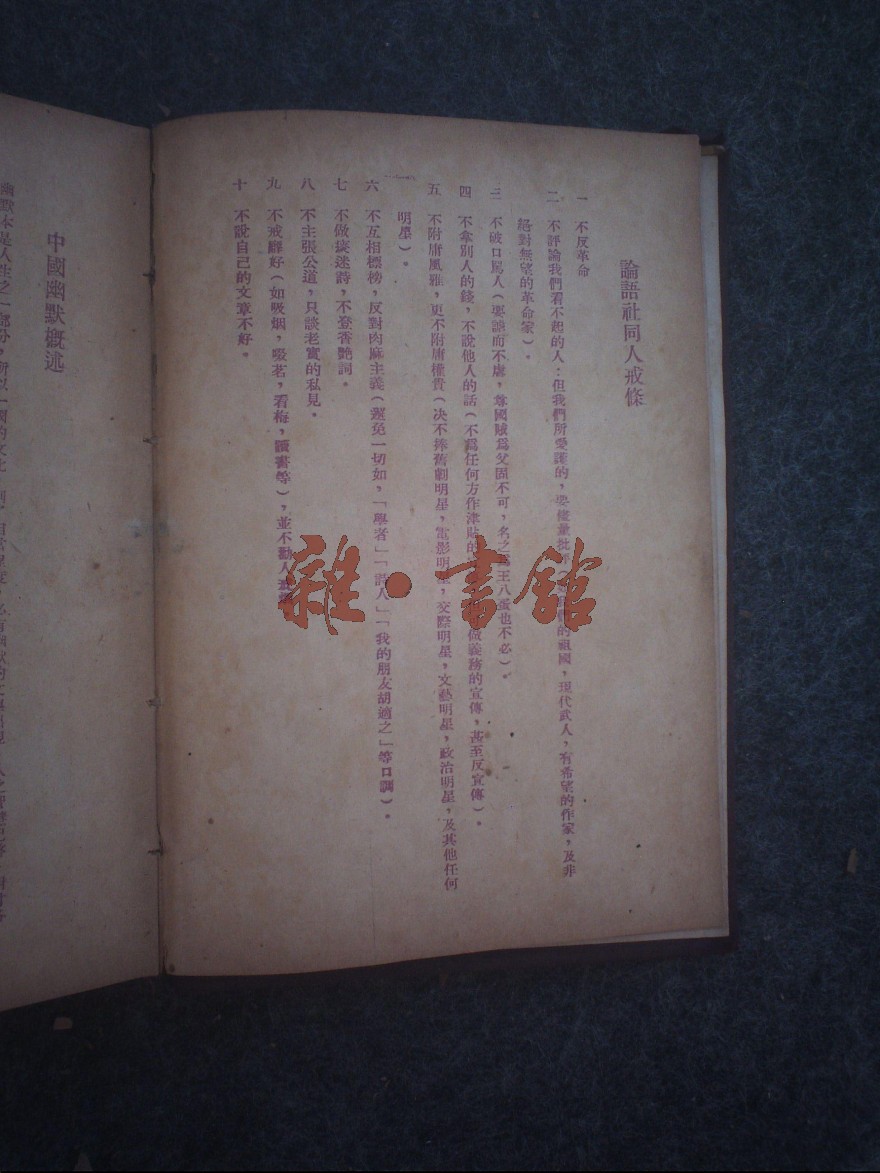 論語社同人戒條
一 不反革命
二 不評論我們看不起的人:但我們所愛護的,要儘量批評 的祖國,現代武人,有希望的作家,及非
絕對無望的革命家)。
三 不破口罵人(要謔而不虐,尊國賊爲父固不可,名之爲王八蛋也不必)。
四 不拿別人的錢,不說他人的話(不爲任何方作津貼的 做義務的宣傳,甚至反宣傳)。
五 不附庸風雅,更不附庸權貴(决不捧舊劇明星,電影明星,交際明星,文藝明星,政治明星,及其他任何
明星)。
六 不互相標榜,反對肉麻主義(避免一切如,「學者」「詩人」「我的朋友胡適之」等口調)。
七 不做痰迷詩,不登香艷詞。
八 不主張公道,只談老實的私見。
九 不戒癖好(如吸烟,啜茗,看梅,讀書等),並不勸人
十 不說自己的文章不好。
中國幽默概述
幽默本是人生之一部分,所以一國的文化
雜·書館